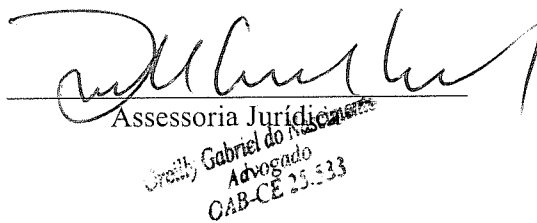 Assessoria Jurídica
Oreilly Gabriel do Nascimento
Advogado
OAB-CE 25.533